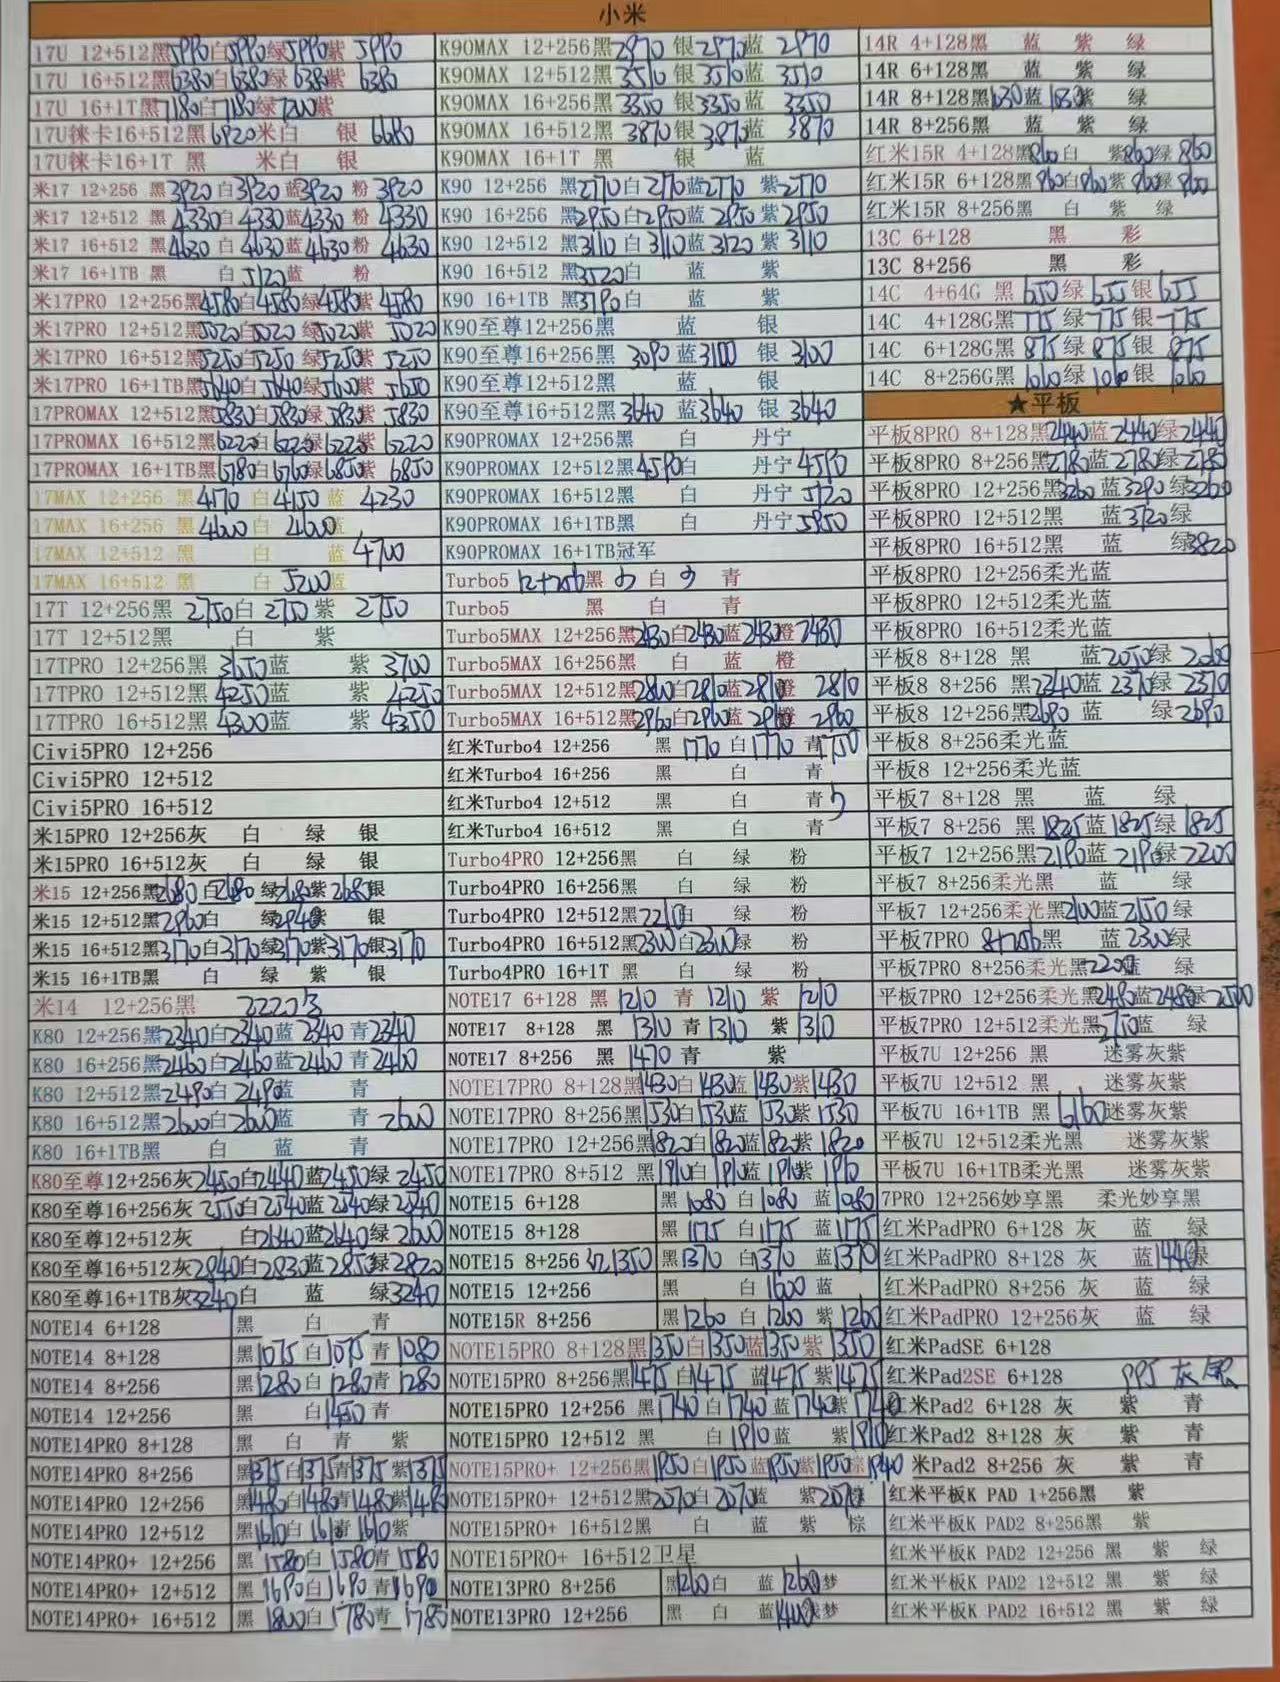 小米
17U 12+512黑5990白5990绿5990紫 5990
17U 16+512黑6380白6380绿 6380紫 6380
17U 16+1T黑7180白7180绿7200紫
17U徕卡16+512黑6920米白 银 6680
17U徕卡16+1T 黑 米白 银
米17 12+256 黑3920白3920蓝3920 粉 3920
米17 12+512 黑4330白4330蓝4330 粉 4330
米17 16+512 黑4630 白4630蓝4630粉 4630
米17 16+1TB 黑 白5120蓝 粉
米17PRO 12+256黑4580白4580绿4580紫 4580
米17PRO 12+512黑5020白5020 绿5020紫 5020
米17PRO 16+512黑5250白5250 绿5250紫 5250
米17PRO 16+1TB黑5640白5640绿5600紫 5650
17PROMAX 12+512黑5830白5830绿5830紫 5830
17PROMAX 16+512黑6220白6220绿6220紫 6220
17PROMAX 16+1TB黑6780白6760绿6850紫 6850
17MAX 12+256 黑4170 白4150 蓝 4230
17MAX 16+256 黑4600 白 4600蓝
17MAX 12+512 黑 白 蓝 4700
17MAX 16+512 黑 白 5200蓝
17T 12+256黑 2750白 2750 紫 2750
17T 12+512黑 白 紫
17TPRO 12+256黑 3650蓝 紫 3700
17TPRO 12+512黑4250蓝 紫 4250
17TPRO 16+512黑4300蓝 紫 4350
Civi5PRO 12+256
Civi5PRO 12+512
Civi5PRO 16+512
米15PRO 12+256灰 白 绿 银
米15PRO 16+512灰 白 绿 银
米15 12+256黑2680 白2680 绿2680紫 2680银
米15 12+512黑2960白 绿2940紫 银
米15 16+512黑3170白3170绿3170紫3170银3170
米15 16+1TB黑 白 绿 紫 银
米14 12+256黑 2220
K80 12+256黑2340白2340蓝 2340 青2340
K80 16+256黑2460白2460蓝2460 青2400
K80 12+512黑2490白2490蓝 青
K80 16+512黑2600白2600蓝 青 2600
K80 16+1TB黑 白 蓝 青
K80至尊12+256灰2450白2440蓝2450绿 2450
K80至尊16+256灰 2550白2540蓝2540绿 2540
K80至尊12+512灰 白2640蓝2640绿 2600
K80至尊16+512灰2840白2830蓝2850绿2820
K80至尊16+1TB灰3240白 蓝 绿3240
NOTE14 6+128 黑 白 青
NOTE14 8+128 黑1075白1075青1080
NOTE14 8+256 黑1280白1280青1280
NOTE14 12+256 黑 白1450青
NOTE14PRO 8+128 黑 白 青 紫
NOTE14PRO 8+256 黑1375白1375青1375紫1375
NOTE14PRO 12+256 黑1480白1480青1480紫1480
NOTE14PRO 12+512 黑1610白1610青1610紫
NOTE14PRO+ 12+256 黑 1580白1580青 1580
NOTE14PRO+ 12+512 黑 1690白1690 青1690
NOTE14PRO+ 16+512 黑 1800白 1780青 1780
K90MAX 12+256黑2970 银2970蓝 2970
K90MAX 12+512黑3510 银3510蓝 3510
K90MAX 16+256黑3350 银3350蓝 3350
K90MAX 16+512黑3870银3870蓝 3870
K90MAX 16+1T 黑 银 蓝
K90 12+256 黑2770白2770蓝2770 紫2770
K90 16+256 黑2950白2950蓝 2950 紫2950
K90 12+512 黑3110 白3110蓝3120 紫 3110
K90 16+512 黑3520白 蓝 紫
K90 16+1TB 黑3790白 蓝 紫
K90至尊12+256黑 蓝 银
K90至尊16+256黑 3090 蓝3100 银 3100
K90至尊12+512黑 蓝 银
K90至尊16+512黑3640 蓝3640 银 3640
K90PROMAX 12+256黑 白 丹宁
K90PROMAX 12+512黑4590白 丹宁 4590
K90PROMAX 16+512黑 白 丹宁 5120
K90PROMAX 16+1TB黑 白 丹宁5950
K90PROMAX 16+1TB冠军
Turbo5 12+256黑 白 青
Turbo5 黑 白 青
Turbo5MAX 12+256黑2430白2430蓝2430橙 2430
Turbo5MAX 16+256黑 白 蓝 橙
Turbo5MAX 12+512黑2800白2810蓝2810橙 2810
Turbo5MAX 16+512黑2960白2960蓝 2960橙 2960
红米Turbo4 12+256 黑 1770 白1770 青1750
红米Turbo4 16+256 黑 白 青
红米Turbo4 12+512 黑 白 青
红米Turbo4 16+512 黑 白 青
Turbo4PRO 12+256黑 白 绿 粉
Turbo4PRO 16+256黑 白 绿 粉
Turbo4PRO 12+512黑2210白 绿 粉
Turbo4PRO 16+512黑2300白2300绿 粉
Turbo4PRO 16+1T 黑 白 绿 粉
NOTE17 6+128 黑 1210 青 1210 紫 1210
NOTE17 8+128 黑 1310 青1310 紫1310
NOTE17 8+256 黑 1470 青 紫
NOTE17PRO 8+128黑1430白1430蓝 1430紫1430
NOTE17PRO 8+256黑1530白1530蓝 1530紫 1530
NOTE17PRO 12+256黑1820白1820蓝1820紫 1820
NOTE17PRO 8+512 黑1910白1910蓝1910紫 1910
NOTE15 6+128 黑1080 白1080 蓝1080
NOTE15 8+128 黑1175 白1175 蓝1175
NOTE15 8+256 1350 黑1370 白1370 蓝1370
NOTE15 12+256 黑 白1600蓝
NOTE15R 8+256 黑1260 白1260 紫1260
NOTE15PRO 8+128黑1350白1350蓝1350 紫 1350
NOTE15PRO 8+256黑1475 白1475 蓝1475 紫1475
NOTE15PRO 12+256 黑1740白1740 蓝1740紫1740
NOTE15PRO 12+512 黑 白1910蓝 紫1910
NOTE15PRO+ 12+256黑1950白1950蓝1950紫1950棕1940
NOTE15PRO+ 12+512黑2070白2070蓝 紫2070棕
NOTE15PRO+ 16+512黑 白 蓝 紫 棕
NOTE15PRO+ 16+512卫星
NOTE13PRO 8+256 黑1260白 蓝1260梦
NOTE13PRO 12+256 黑 白 蓝1400浅梦
14R 4+128黑 蓝 紫 绿
14R 6+128黑 蓝 紫 绿
14R 8+128黑1030蓝1030紫 绿
14R 8+256黑 蓝 紫 绿
红米15R 4+128黑860白 紫860绿 860
红米15R 6+128黑960白960紫 960绿 960
红米15R 8+256黑 白 紫 绿
13C 6+128 黑 彩
13C 8+256 黑 彩
14C 4+64G 黑 650绿 655银 655
14C 4+128G黑 775绿 775银 775
14C 6+128G黑 875绿 875银 875
14C 8+256G黑 1060绿 1060银 1060
★平板
平板8PRO 8+128黑2440蓝 2440绿2440
平板8PRO 8+256黑2780蓝 2780绿2780
平板8PRO 12+256黑3260蓝3290绿3260
平板8PRO 12+512黑 蓝3720绿
平板8PRO 16+512黑 蓝 绿3820
平板8PRO 12+256柔光蓝
平板8PRO 12+512柔光蓝
平板8PRO 16+512柔光蓝
平板8 8+128 黑 蓝2050绿 2060
平板8 8+256 黑2340蓝 2370绿2370
平板8 12+256黑2690 蓝 绿2690
平板8 8+256柔光蓝
平板8 12+256柔光蓝
平板7 8+128 黑 蓝 绿
平板7 8+256 黑1825蓝1825绿 1825
平板7 12+256黑2190蓝 2190绿2200
平板7 8+256柔光黑 蓝 绿
平板7 12+256柔光黑2100蓝2150 绿
平板7PRO 8+256黑 蓝2300绿
平板7PRO 8+256柔光黑2200蓝 绿
平板7PRO 12+256柔光黑2480蓝2480绿2500
平板7PRO 12+512柔光黑2750蓝 绿
平板7U 12+256 黑 迷雾灰紫
平板7U 12+512 黑 迷雾灰紫
平板7U 16+1TB 黑 6160迷雾灰紫
平板7U 12+512柔光黑 迷雾灰紫
平板7U 16+1TB柔光黑 迷雾灰紫
7PRO 12+256妙享黑 柔光妙享黑
红米PadPRO 6+128 灰 蓝 绿
红米PadPRO 8+128 灰 蓝1440绿
红米PadPRO 8+256 灰 蓝 绿
红米PadPRO 12+256灰 蓝 绿
红米PadSE 6+128
红米Pad2SE 6+128 995 灰
红米Pad2 6+128 灰 紫 青
红米Pad2 8+128 灰 紫 青
米Pad2 8+256 灰 紫 青
红米平板K PAD 1+256黑 紫
红米平板K PAD2 8+256黑 紫
红米平板K PAD2 12+256 黑 紫 绿
红米平板K PAD2 12+512 黑 紫 绿
红米平板K PAD2 16+512 黑 紫 绿